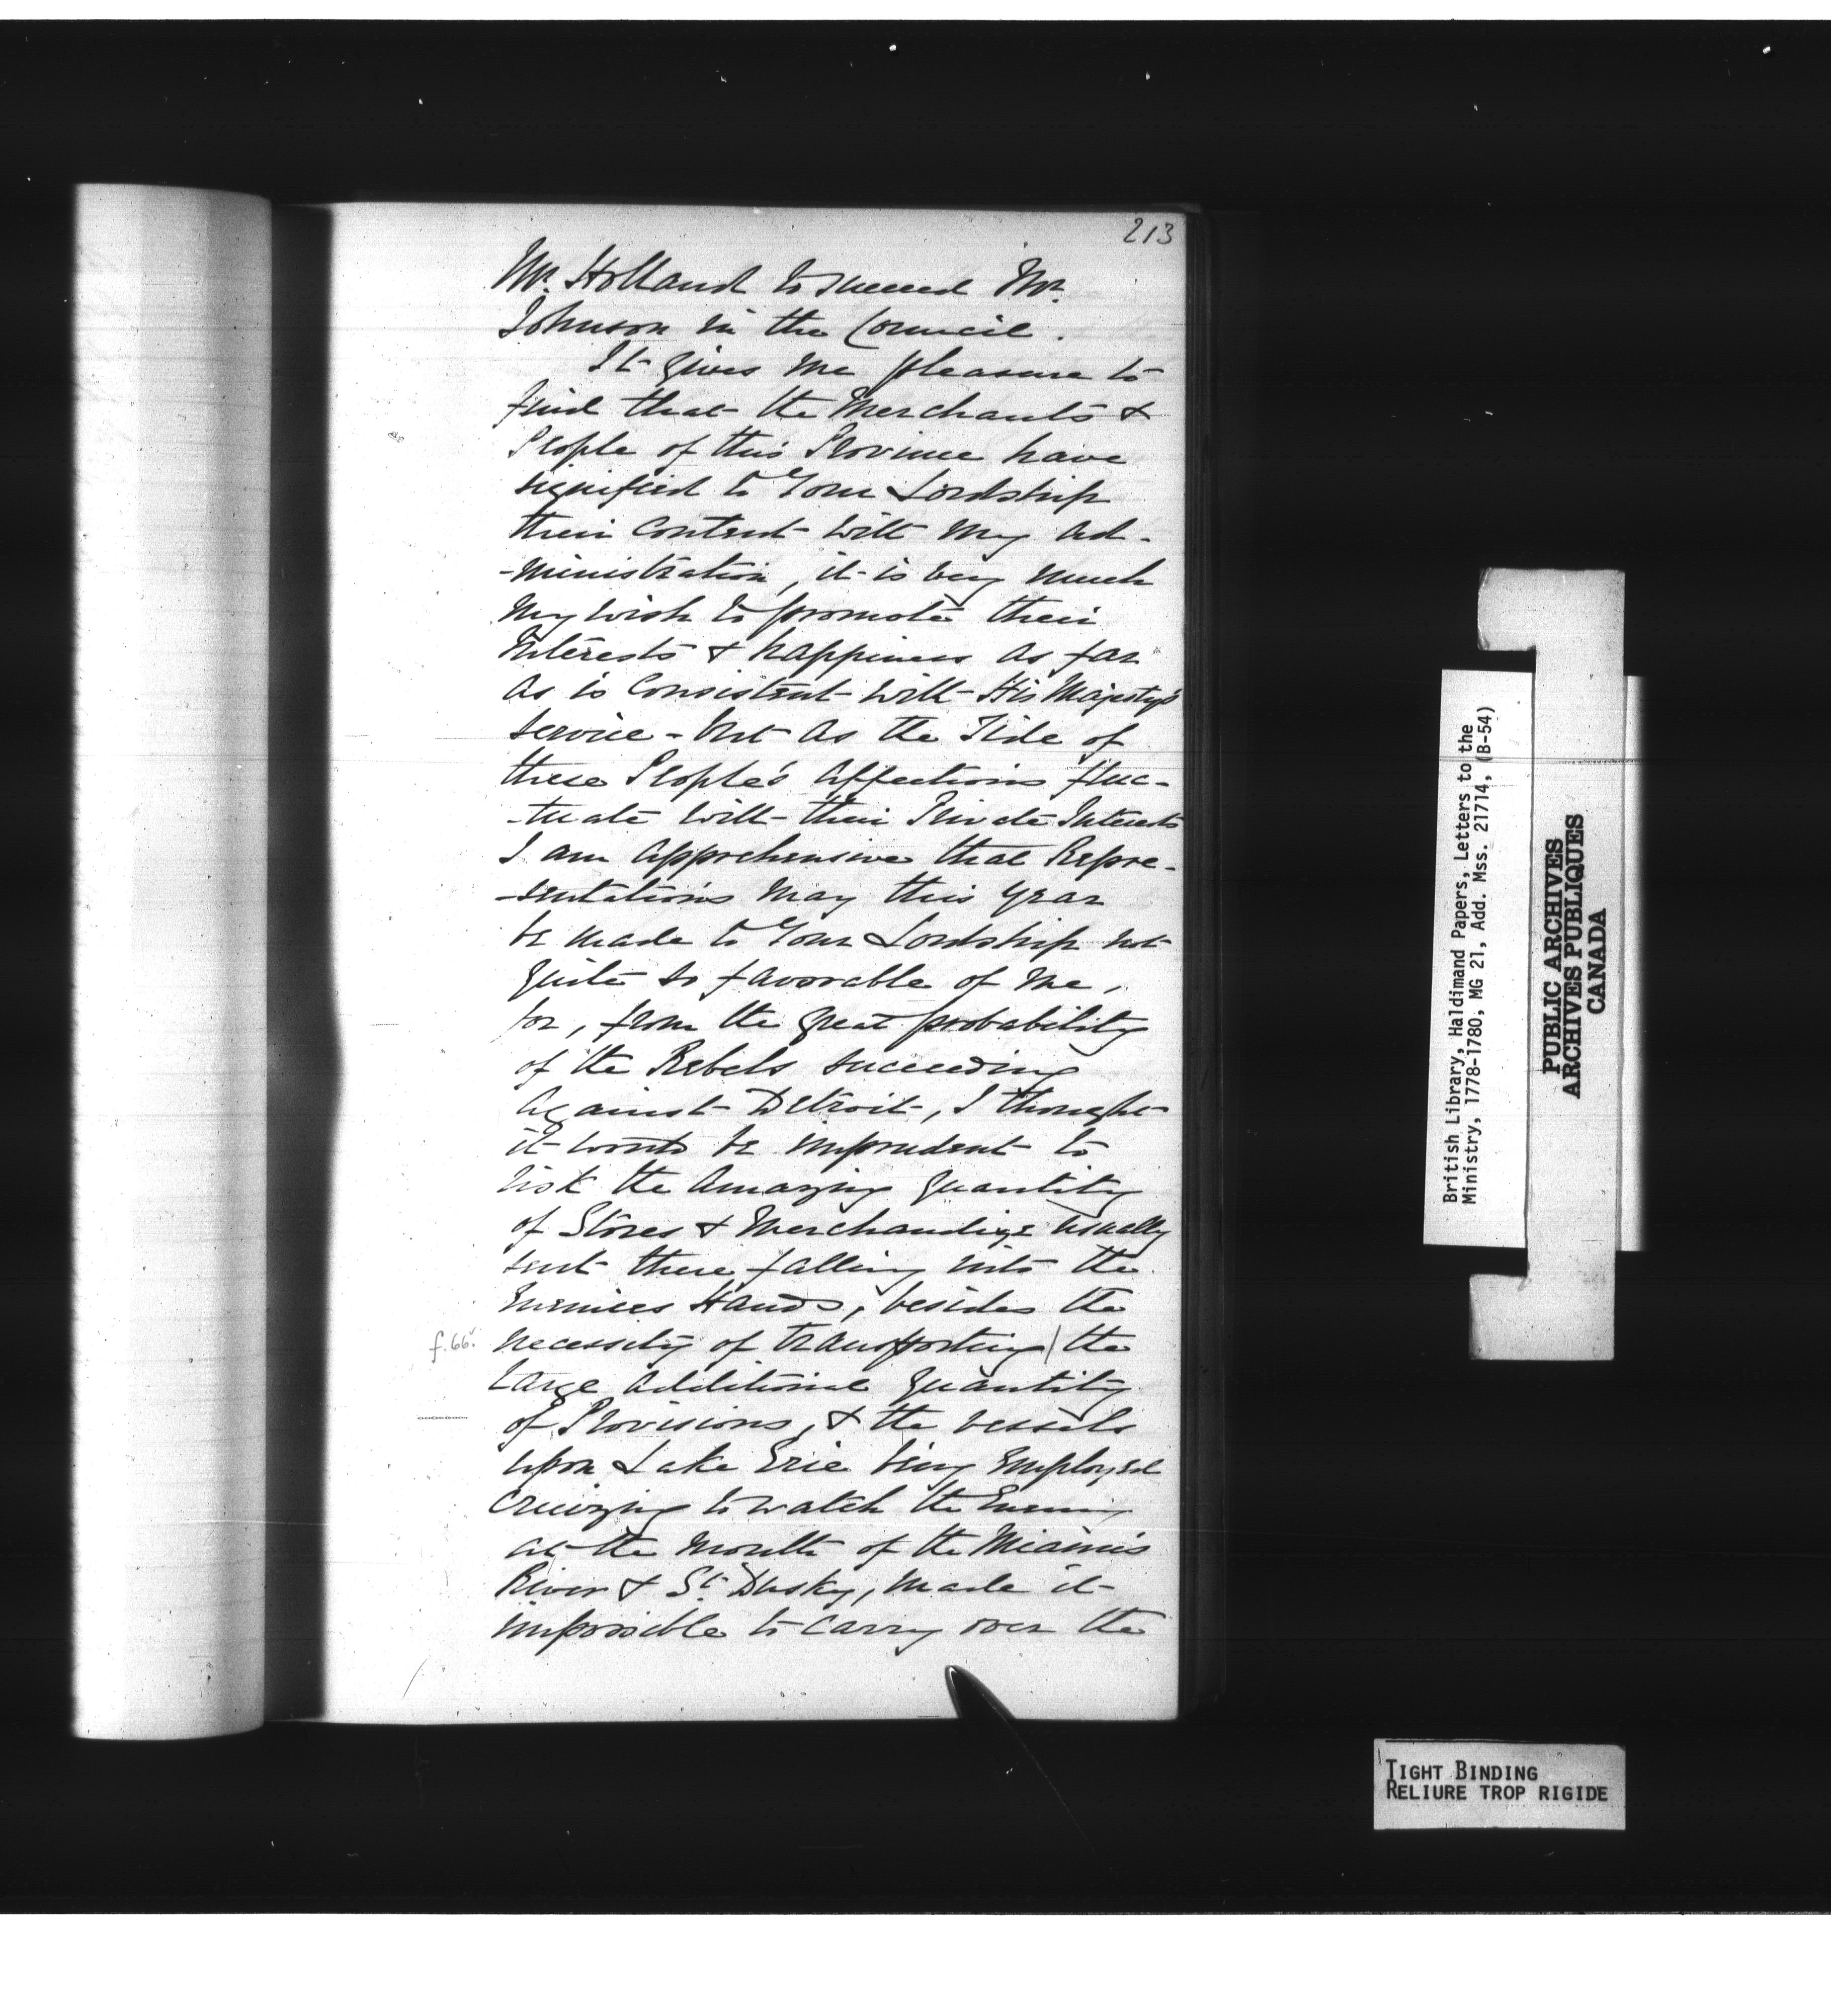 213
Mr. Holland to succeed Mr.
Johnson in the Council.
It gives me pleasure to
find that the Merchants &
People of this Province have
signified to Your Lordship
their Content with my ad-
-ministration, it is very much
my wish to promote their
Interests & happiness as far
as is Consistent with His Majesty's
Service - but as the Tide of
these People's affections fluc-
-tuate with their Private Interests
I am apprehensive that Repre-
-sentations may this year
be made to Your Lordship not
quite so favorable of me,
for, from the great probability
of the Rebels succeeding
against Detroit, I thought
it would be imprudent to
risk the amazing quantity
of Stores & Merchandize usually
sent there falling into the
Enemies Hands, besides the
f.66v necessity of transporting / the
large additional quantity
of Provisions, & the vessels
upon Lake Erie being Employed
cruizing to watch the Enemy
at the mouth of the Miamis
River & St. Dusky, made it
impossible to carry over the
British Library, Haldimand Papers, Letters to the
Ministry, 1778-1780, MG 21, Add. Mss. 21714, (B-54)
PUBLIC ARCHIVES
ARCHIVES PUBLIQUES
CANADA
TIGHT BINDING
RELIURE TROP RIGIDE